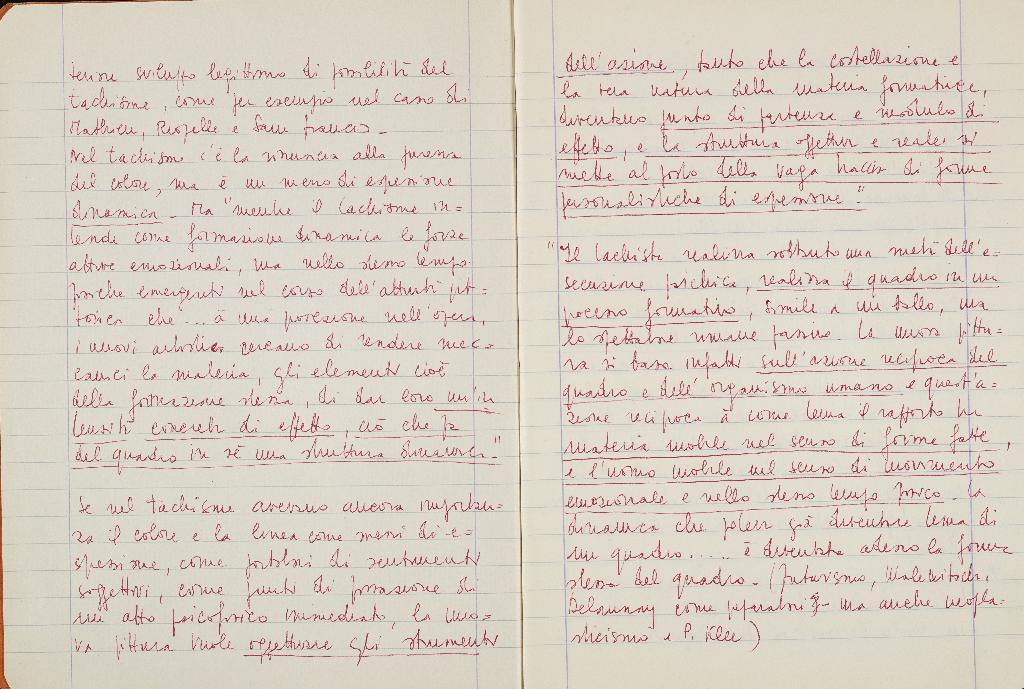 tenere sviluppo legittimo di possibilità del
tachisme, come per esempio nel caso di
Mathieu, Riopelle e Sam Francis.
Nel tachisme c'è la rinuncia alla purezza
del colore, ma è un mezzo di espressione
dinamica. Ma "mentre il tachisme in=
tende come formazione dinamica le forze
attive emozionali, ma nello stesso tempo
psiche emergenti nel corso dell'attività pit=
torica che ... à una posizione nell'opera,
i nuovi artistici cercano di rendere mec=
canici la materia, gli elementi cioè
della formazione stessa, di dar loro un'in
tensità concreta di effetto, ciò che fa
del quadro in sé una struttura dinamica."
Se nel tachisme avevano ancora importan=
za il colore e la linea come mezzi di e=
spressione, come portatori di sentimenti
soggettivi, come punti di
un atto psicofisico immediato, la nuo=
va pittura vuole oggettivare gli strumenti
dell'azione, tanto che la costellazione e
la vera natura della materia formatrice,
diventano punto di partenza e modulo di
effetto, e la struttura oggettiva e reale si
mette al posto della vaga traccia di forme
personalistiche di espressione".
"Il tachista realizza soltanto una metà dell'e=
secuzione psichica, realizza il quadro in un
processo formativo, simile a un ballo, ma
lo spettatore rimane passivo. La nuova pittu=
ra si basa infatti sull'azione reciproca del
quadro e dell'organismo umano e quest'a=
zione reciproca à come tema il rapporto tra
materia mobile nel senso di forme fatte,
e l'uomo mobile nel senso di movimento
emozionale e nello stesso tempo fisico. La
dinamica che poteva già diventare tema di
un quadro..... è diventata adesso la forma
stessa del quadro. (Futurismo, Malevitsch,
Delaunay come preparatori - ma anche neopla=
sticismo e P. Klee)